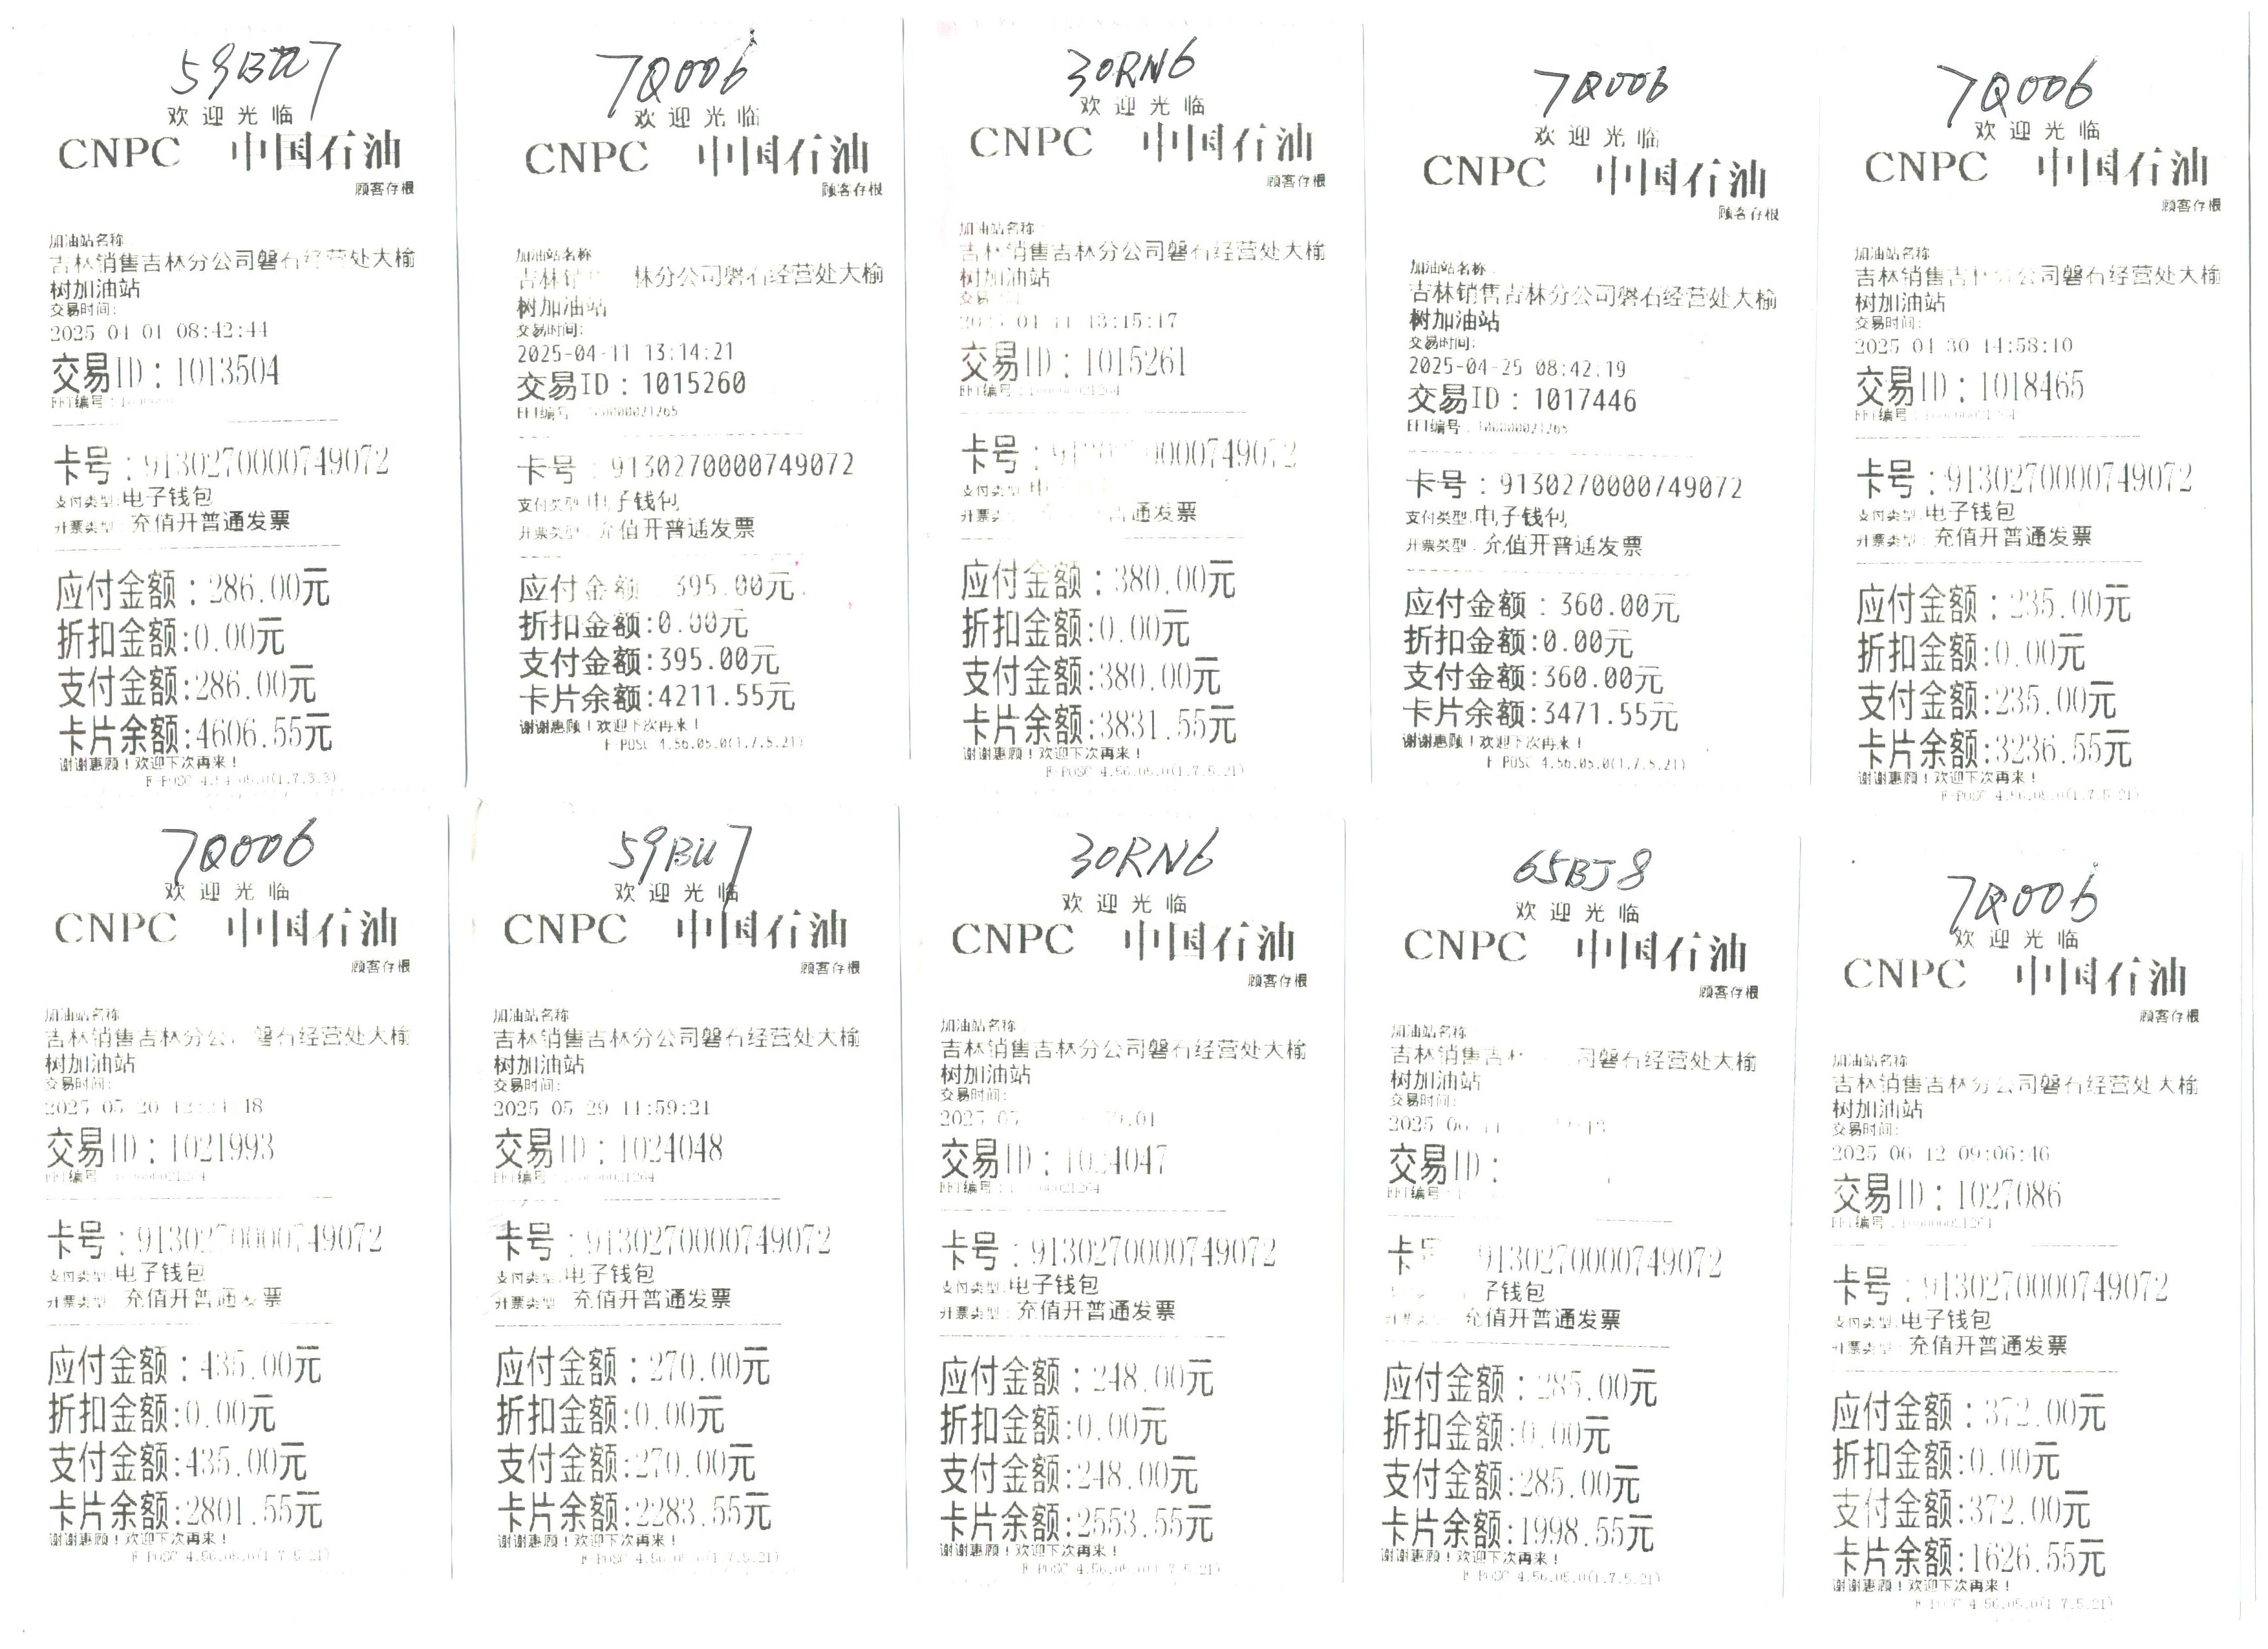 59BU7
欢迎光临
CNPC 中国石油
顾客存根
加油站名称
吉林销售吉林分公司磐石经营处大榆
树加油站
交易时间:
2025 04 01 08:42:44
交易ID:1013504
EFT编号:
卡号:9130270000749072
支付类型:电子钱包
开票类型: 充值开普通发票
应付金额:286.00元
折扣金额:0.00元
支付金额:286.00元
卡片余额:4606.55元
谢谢惠顾!欢迎下次再来!
7Q006
欢迎光临
CNPC 中国石油
顾客存根
加油站名称
吉林销 林分公司磐石经营处大榆
树加油站
交易时间:
2025-04-11 13:14:21
交易ID:1015260
EFT编号
卡号:9130270000749072
支付类型:电子钱包
开票类型: 充值开普通发票
应付金额 395.00元
折扣金额:0.00元
支付金额:395.00元
卡片余额:4211.55元
谢谢惠顾!欢迎下次再来!
F-POSC 4.56.05.0(1.7.5.21)
30RN6
欢迎光临
CNPC 中国石油
顾客存根
加油站名称
吉林销售吉林分公司磐石经营处大榆
树加油站
交易
13:15:17
交易ID:1015261
EFT编号
卡号: 0000749072
支付类型
开票类型 普通发票
应付金额:380.00元
折扣金额:0.00元
支付金额:380.00元
卡片余额:3831.55元
谢谢惠顾!欢迎下次再来!
F-POSC 4.56.05.0(1.7.5.21)
7Q006
欢迎光临
CNPC 中国石油
顾客存根
加油站名称
吉林销售吉林分公司磐石经营处大榆
树加油站
交易时间:
2025-04-25 08:42:19
交易ID:1017446
EFT编号
卡号:9130270000749072
支付类型:电子钱包
开票类型: 充值开普通发票
应付金额:360.00元
折扣金额:0.00元
支付金额:360.00元
卡片余额:3471.55元
谢谢惠顾!欢迎下次再来!
F-POSC 4.56.05.0(1.7.5.21)
7Q006
欢迎光临
CNPC 中国石油
顾客存根
加油站名称
吉林销售吉林分公司磐石经营处大榆
树加油站
交易时间:
2025 04 30 14:58:10
交易ID:1018465
EFT编号
卡号:9130270000749072
支付类型:电子钱包
开票类型: 充值开普通发票
应付金额:235.00元
折扣金额:0.00元
支付金额:235.00元
卡片余额:3236.55元
谢谢惠顾!欢迎下次再来!
F-POSC 4.56.05.0(1.7.5.21)
7Q006
欢迎光临
CNPC 中国石油
顾客存根
加油站名称
吉林销售吉林分公 磐石经营处大榆
树加油站
交易时间:
2025 05 20
交易ID:1021993
EFT编号
卡号:9130270000749072
支付类型:电子钱包
开票类型: 充值开普通发票
应付金额:435.00元
折扣金额:0.00元
支付金额:435.00元
卡片余额:2801.55元
谢谢惠顾!欢迎下次再来!
F-POSC 4.56.05.0(1.7.5.21)
59BU7
欢迎光临
CNPC 中国石油
顾客存根
加油站名称
吉林销售吉林分公司磐石经营处大榆
树加油站
交易时间:
2025 05 29 11:59:21
交易ID:1024048
EFT编号
卡号:9130270000749072
支付类型:电子钱包
开票类型: 充值开普通发票
应付金额:270.00元
折扣金额:0.00元
支付金额:270.00元
卡片余额:2283.55元
谢谢惠顾!欢迎下次再来!
F-POSC 4.56.05.0(1.7.5.21)
30RN6
欢迎光临
CNPC 中国石油
顾客存根
加油站名称
吉林销售吉林分公司磐石经营处大榆
树加油站
交易时间:
2025 05
交易ID:1024047
EFT编号
卡号:9130270000749072
支付类型:电子钱包
开票类型: 充值开普通发票
应付金额:248.00元
折扣金额:0.00元
支付金额:248.00元
卡片余额:2553.55元
谢谢惠顾!欢迎下次再来!
F-POSC 4.56.05.0(1.7.5.21)
65BJ8
欢迎光临
CNPC 中国石油
顾客存根
加油站名称
吉林销售吉林 司磐石经营处大榆
树加油站
交易时间:
2025 06
交易ID:
EFT编号
卡号 9130270000749072
子钱包
开票类型 充值开普通发票
应付金额:285.00元
折扣金额:0.00元
支付金额:285.00元
卡片余额:1998.55元
谢谢惠顾!欢迎下次再来!
F-POSC 4.56.05.0(1.7.5.21)
7Q006
欢迎光临
CNPC 中国石油
顾客存根
加油站名称
吉林销售吉林分公司磐石经营处大榆
树加油站
交易时间:
2025 06 12 09:06:46
交易ID:1027086
EFT编号
卡号:9130270000749072
支付类型:电子钱包
开票类型: 充值开普通发票
应付金额:372.00元
折扣金额:0.00元
支付金额:372.00元
卡片余额:1626.55元
谢谢惠顾!欢迎下次再来!
F-POSC 4.56.05.0(1.7.5.21)